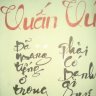 Vuấn Vu
Đã
mang
tiếng
ở
trong
phải
có
danh
gì